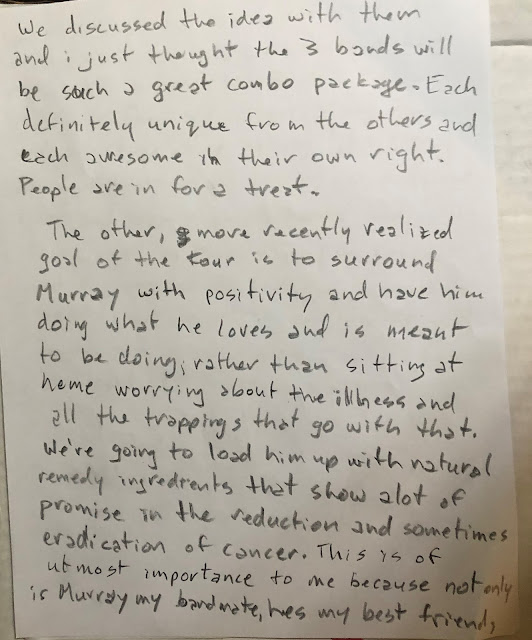 We discussed the idea with them
and i just thought the 3 bands will
be such a great combo package. Each
definitely unique from the others and
each awesome in their own right.
People are in for a treat.
The other, more recently realized
goal of the tour is to surround
Murray with positivity and have him
doing what he loves and is meant
to be doing, rather than sitting at
home worrying about the illness and
all the trappings that go with that.
We're going to load him up with natural
remedy ingredients that show alot of
promise in the reduction and sometimes
eradication of cancer. This is of
utmost importance to me because not only
is Murray my bandmate, hes my best friend,